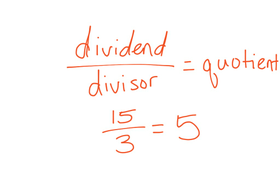 dividend
divisor = quotient
15
3 = 5